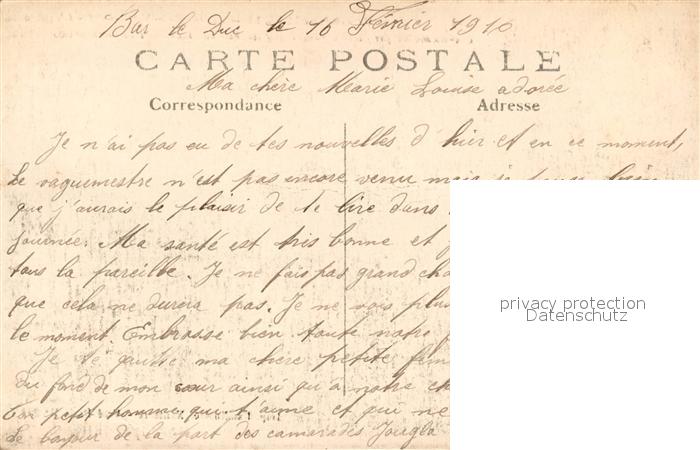 Bar le Duc le 16 Février 1916
CARTE POSTALE
Ma chère Marie Louise adorée
Correspondance Adresse
Je n'ai pas eu de tes nouvelles d'hier et en ce moment,
le vaguemestre n'est pas encore venu mais je pense bien
que j'aurais le plaisir de te lire dans
journée. Ma santé est très bonne et
tous la pareille. Je ne fais pas grand
que cela ne durera pas. Je ne vois plus
le moment. Embrasse bien toute notre
Je te quitte ma chère petite
du fond de mon cœur ainsi qu'à notre
Ton petit homme qui t'aime et qui ne
Le bonjour de la part des camarades
privacy protection
Datenschutz